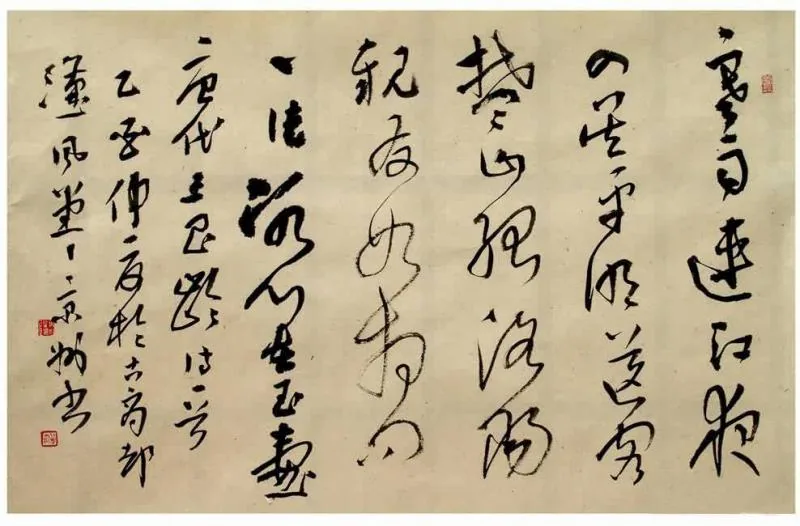 寒雨連江夜
入吴平明送客
楚山孤洛陽
親友如相问
一片冰心在玉壶
唐代王昌齡诗一首
乙酉仲夏於古商都
風堂 书